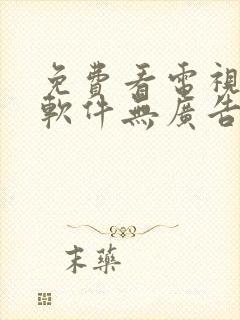 免費看電視
軟件無廣告
末藥